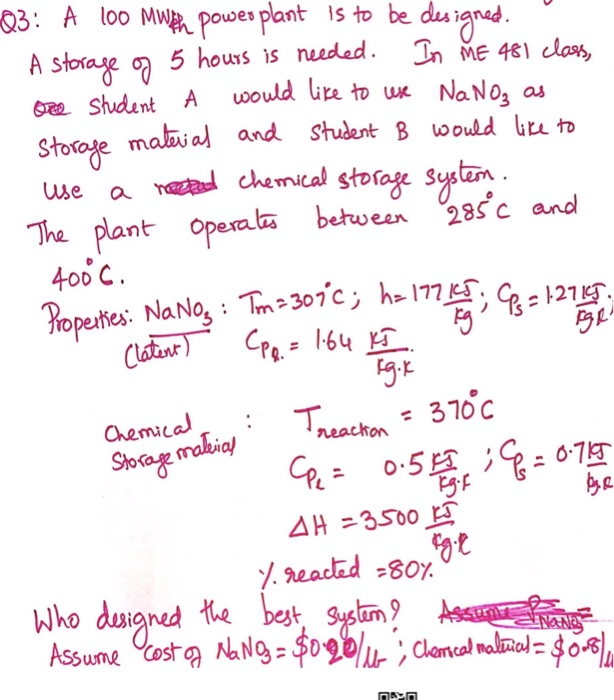 Q3: A 100 MWth power plant is to be designed.
A storage of 5 hours is needed. In ME 481 class,
Student A would like to use NaNO3 as
storage material and student B would like to
use a chemical storage system.
The plant operates between 285°C and
400°C.
Properties: NaNO3 : Tm=307°C; h=177 KJ/Kg; CPs=1.27 KJ/Kg.K;
(latent) CPl = 1.64 KJ/Kg.K
Chemical Storage material : Treaction = 370°C
CPl = 0.5 KJ/Kg.K ; CPs = 0.7 KJ/Kg.K
ΔH = 3500 KJ/Kg.K
% reacted = 80%
Who designed the best system?
Assume cost of NaNO3 = $0.20/lb ; Chemical material = $0.8/